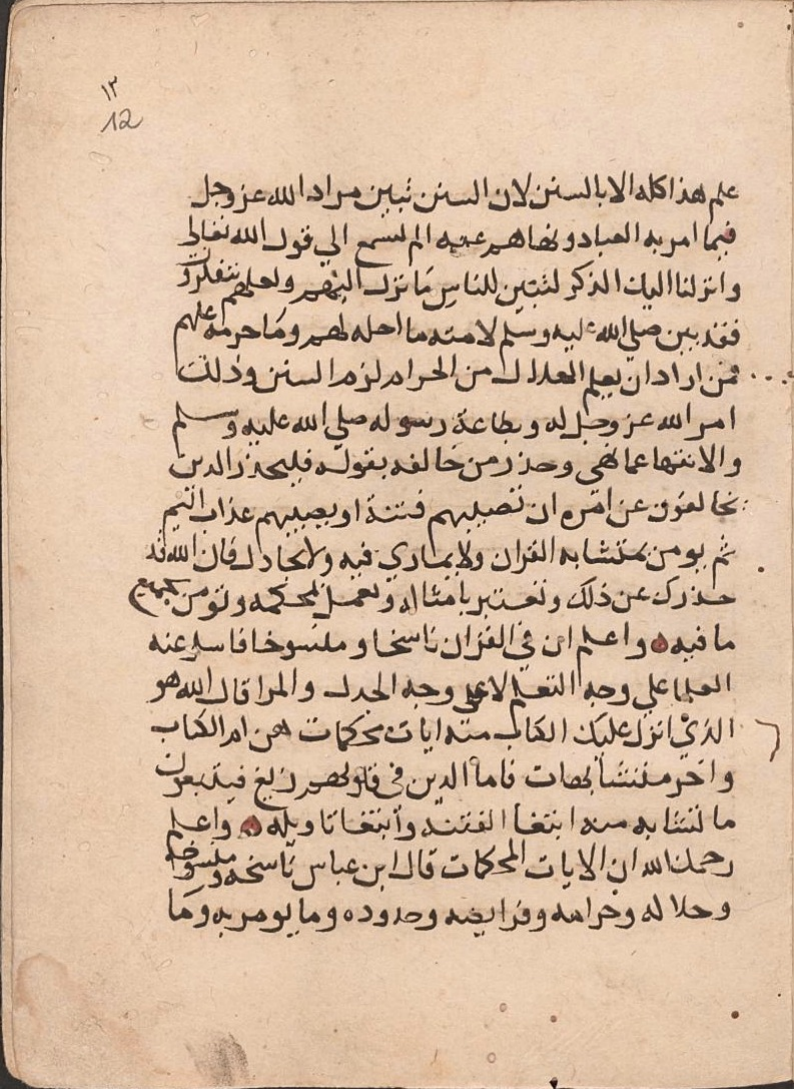 ١٢
12
علم هذا كله الا بالسنن لان السنن تبين مراد الله عز وجل
فيما امر به العباد ونهاهم عنه الم تسمع الي قول الله تعالي
وانزلنا اليك الذكر لتبين للناس ما نزل اليهم ولعلهم يتفكرون
فقد بين صلي الله عليه وسلم لامته ما احله لهم وما حرمه عليهم
فمن اراد ان يعلم الحلال من الحرام لزم السنن وذلك
امر الله عز وجل له وبطاعة رسوله صلي الله عليه وسلم
والانتها عما نهي وحذر من خالفه بقوله فليحذر الذين
يخالفون عن امره ان تصيبهم فتنة او يصيبهم عذاب اليم
ثم يومن بمتشابه القران ولا يماري فيه ولا يجادل فان الله قد
حذرك عن ذلك وتعتبر بامثاله وتعمل بمحكمه وتومن بجميع
ما فيه ه واعلم ان في القران ناسخا ومنسوخا فاسل عنه
العلما علي وجه التعلم لا علي وجه الجدل والمرا قال الله هو
الذي انزل عليك الكتاب منه ايات محكمات هن ام الكتاب
واخر متشابهات فاما الذين في قلوبهم زيغ فيتبعون
ما تشابه منه ابتغا الفتنه وابتغا تاويله ه واعلم
رحمك الله ان الايات المحكمات قال ابن عباس ناسخه ومنسوخه
وحلاله وحرامه وفرايضه وحدوده وما يومر به وما